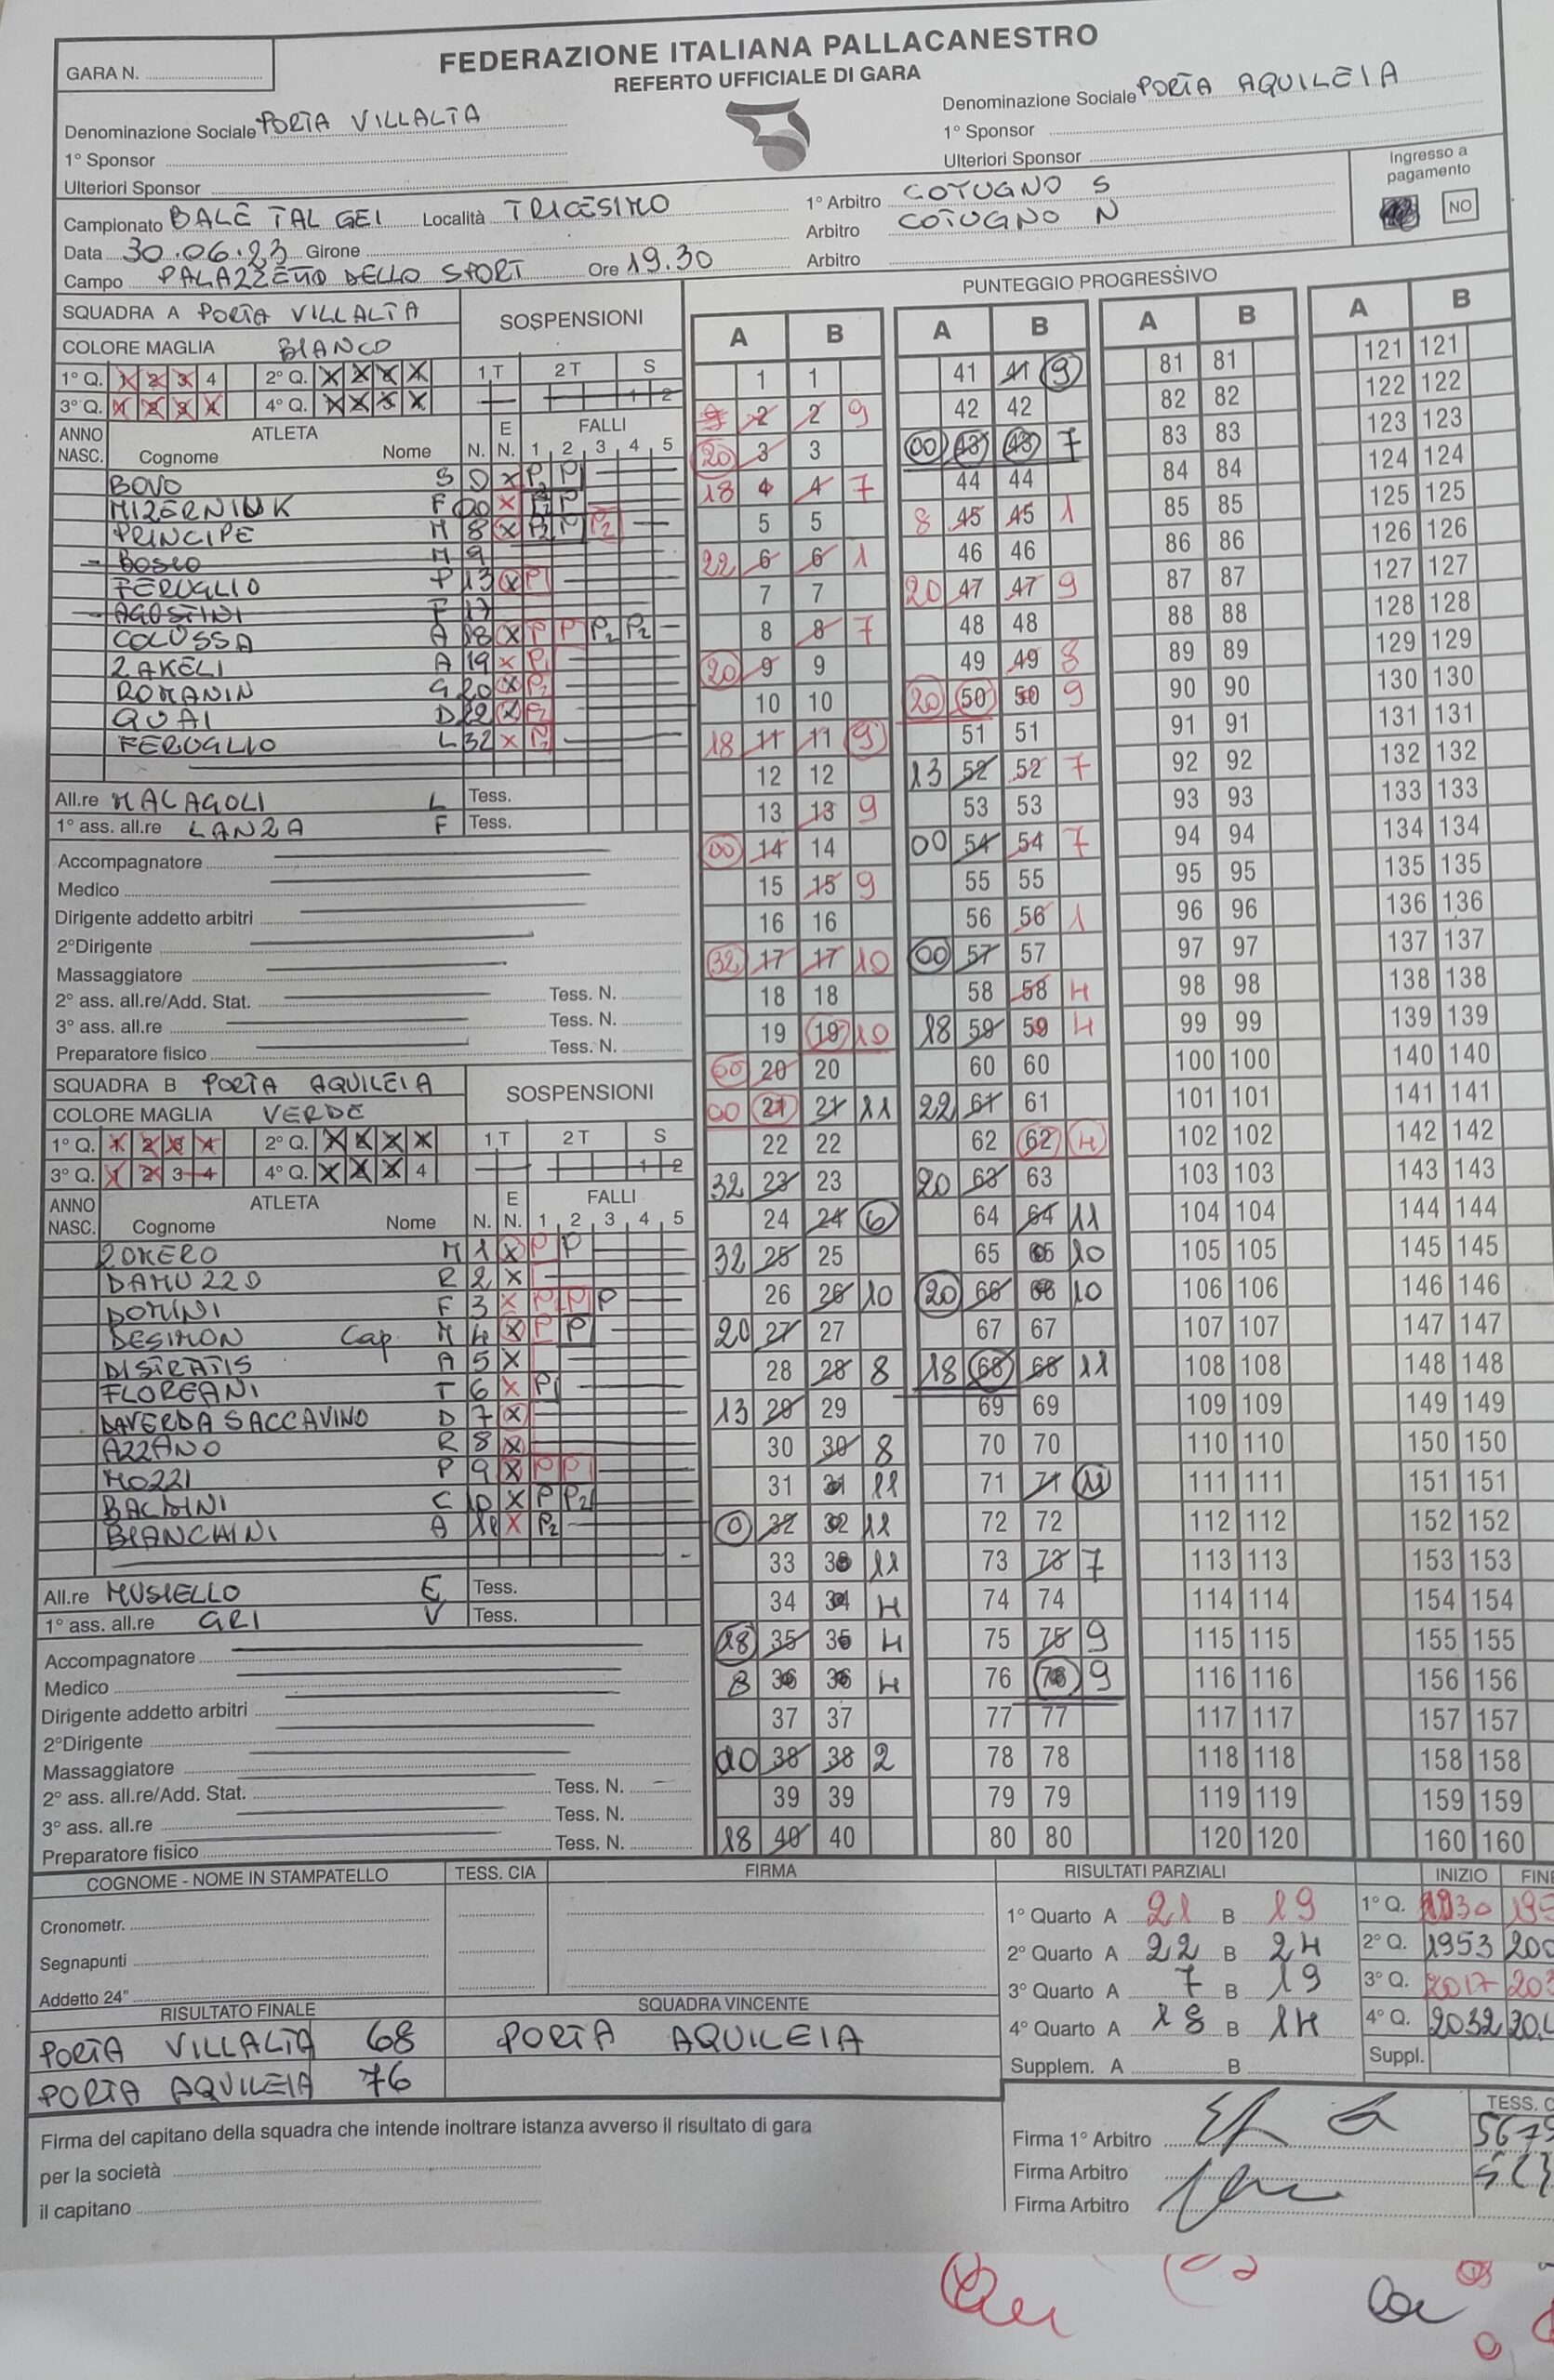 FEDERAZIONE ITALIANA PALLACANESTRO
REFERTO UFFICIALE DI GARA
GARA N.
Denominazione Sociale PORTA VILLALTA
1° Sponsor
Ulteriori Sponsor
Denominazione Sociale PORTA AQUILEIA
1° Sponsor
Ulteriori Sponsor
Ingresso a pagamento
NO
Campionato BALE TAL GEI Località TRICESIMO
1° Arbitro COTUGNO S
Data 30.06.23 Girone
Arbitro COTUGNO N
Campo PALAZZETTO DELLO SPORT Ore 19.30
Arbitro
SQUADRA A PORTA VILLALTA
SOSPENSIONI
COLORE MAGLIA BIANCO
1° Q. 1 2 3 4 2° Q.
3° Q. 4° Q.
1 T 2 T S
1 2
ANNO NASC. ATLETA Cognome Nome N. E N. FALLI 1 2 3 4 5
BOVO S 0 X P2 P
MIZERNIUK F 00 X P
PRINCIPE M 8 X P2 P P2
BOSCO M 9
FERUGLIO P 13 X P
AGOSTINI F 17
COLUSSA A 18 X P P P2 P2
ZAKELI A 19 X P
ROMANIN G 20 X P2
QUAI D 22 X P2
FERUGLIO L 32 X P2
All.re MALAGOLI L Tess.
1° ass. all.re LANZA F Tess.
Accompagnatore
Medico
Dirigente addetto arbitri
2°Dirigente
Massaggiatore
2° ass. all.re/Add. Stat. Tess. N.
3° ass. all.re Tess. N.
Preparatore fisico Tess. N.
SQUADRA B PORTA AQUILEIA
SOSPENSIONI
COLORE MAGLIA VERDE
1° Q. 1 2 3 4 2° Q.
3° Q. 1 2 3 4 4° Q. 4
1 T 2 T S
1 2
ANNO NASC. ATLETA Cognome Nome N. E N. FALLI 1 2 3 4 5
ROMERO M 1 X P P
DAMUZZO R 2 X
DOMINI F 3 X P P P
DESIMON Cap. M 4 X P P
DISTRATIS A 5 X
FLOREANI T 6 X P
DAVERDA SACCAVINO D 7 X
AZZANO R 8 X
MOZZI P 9 X P P
BALDINI C 10 X P P2
BIANCHINI A 11 X P2
All.re MUSIELLO E Tess.
1° ass. all.re GRI V Tess.
Accompagnatore
Medico
Dirigente addetto arbitri
2°Dirigente
Massaggiatore
2° ass. all.re/Add. Stat. Tess. N.
3° ass. all.re Tess. N.
Preparatore fisico Tess. N.
PUNTEGGIO PROGRESSIVO
A B
1 1
9 2 2 9
20 3 3
18 4 4 7
5 5
22 6 6 1
7 7
8 8 7
20 9 9
10 10
18 11 11 9
12 12
13 13 9
00 14 14
15 15 9
16 16
32 17 17 10
18 18
19 19 10
00 20 20
00 21 21 11
22 22
32 23 23
24 24 6
32 25 25
26 26 10
20 27 27
28 28 8
13 29 29
30 30 8
31 31 11
0 32 32 11
33 33 11
34 34 4
18 35 35 4
8 36 36 4
37 37
00 38 38 2
39 39
18 40 40
A B
41 41 9
42 42
00 43 43 7
44 44
8 45 45 1
46 46
20 47 47 9
48 48
49 49 8
20 50 50 9
51 51
13 52 52 7
53 53
00 54 54 7
55 55
56 56 1
00 57 57
58 58 4
18 59 59 4
60 60
22 61 61
62 62 4
20 63 63
64 64 11
65 65 10
20 66 66 10
67 67
18 68 68 11
69 69
70 70
71 71 11
72 72
73 73 7
74 74
75 75 9
76 76 9
77 77
78 78
79 79
80 80
A B
81 81
82 82
83 83
84 84
85 85
86 86
87 87
88 88
89 89
90 90
91 91
92 92
93 93
94 94
95 95
96 96
97 97
98 98
99 99
100 100
101 101
102 102
103 103
104 104
105 105
106 106
107 107
108 108
109 109
110 110
111 111
112 112
113 113
114 114
115 115
116 116
117 117
118 118
119 119
120 120
A B
121 121
122 122
123 123
124 124
125 125
126 126
127 127
128 128
129 129
130 130
131 131
132 132
133 133
134 134
135 135
136 136
137 137
138 138
139 139
140 140
141 141
142 142
143 143
144 144
145 145
146 146
147 147
148 148
149 149
150 150
151 151
152 152
153 153
154 154
155 155
156 156
157 157
158 158
159 159
160 160
COGNOME - NOME IN STAMPATELLO TESS. CIA FIRMA
Cronometr.
Segnapunti
Addetto 24"
RISULTATI PARZIALI
1° Quarto A 21 B 19
2° Quarto A 22 B 24
3° Quarto A 7 B 19
4° Quarto A 18 B 14
Supplem. A B
INIZIO
1° Q. 1930
2° Q. 1953
3° Q. 2017
4° Q. 2032
Suppl.
RISULTATO FINALE
PORTA VILLALTA 68
PORTA AQUILEIA 76
SQUADRA VINCENTE
PORTA AQUILEIA
Firma del capitano della squadra che intende inoltrare istanza avverso il risultato di gara
per la società
il capitano
TESS.
Firma 1° Arbitro
Firma Arbitro
Firma Arbitro